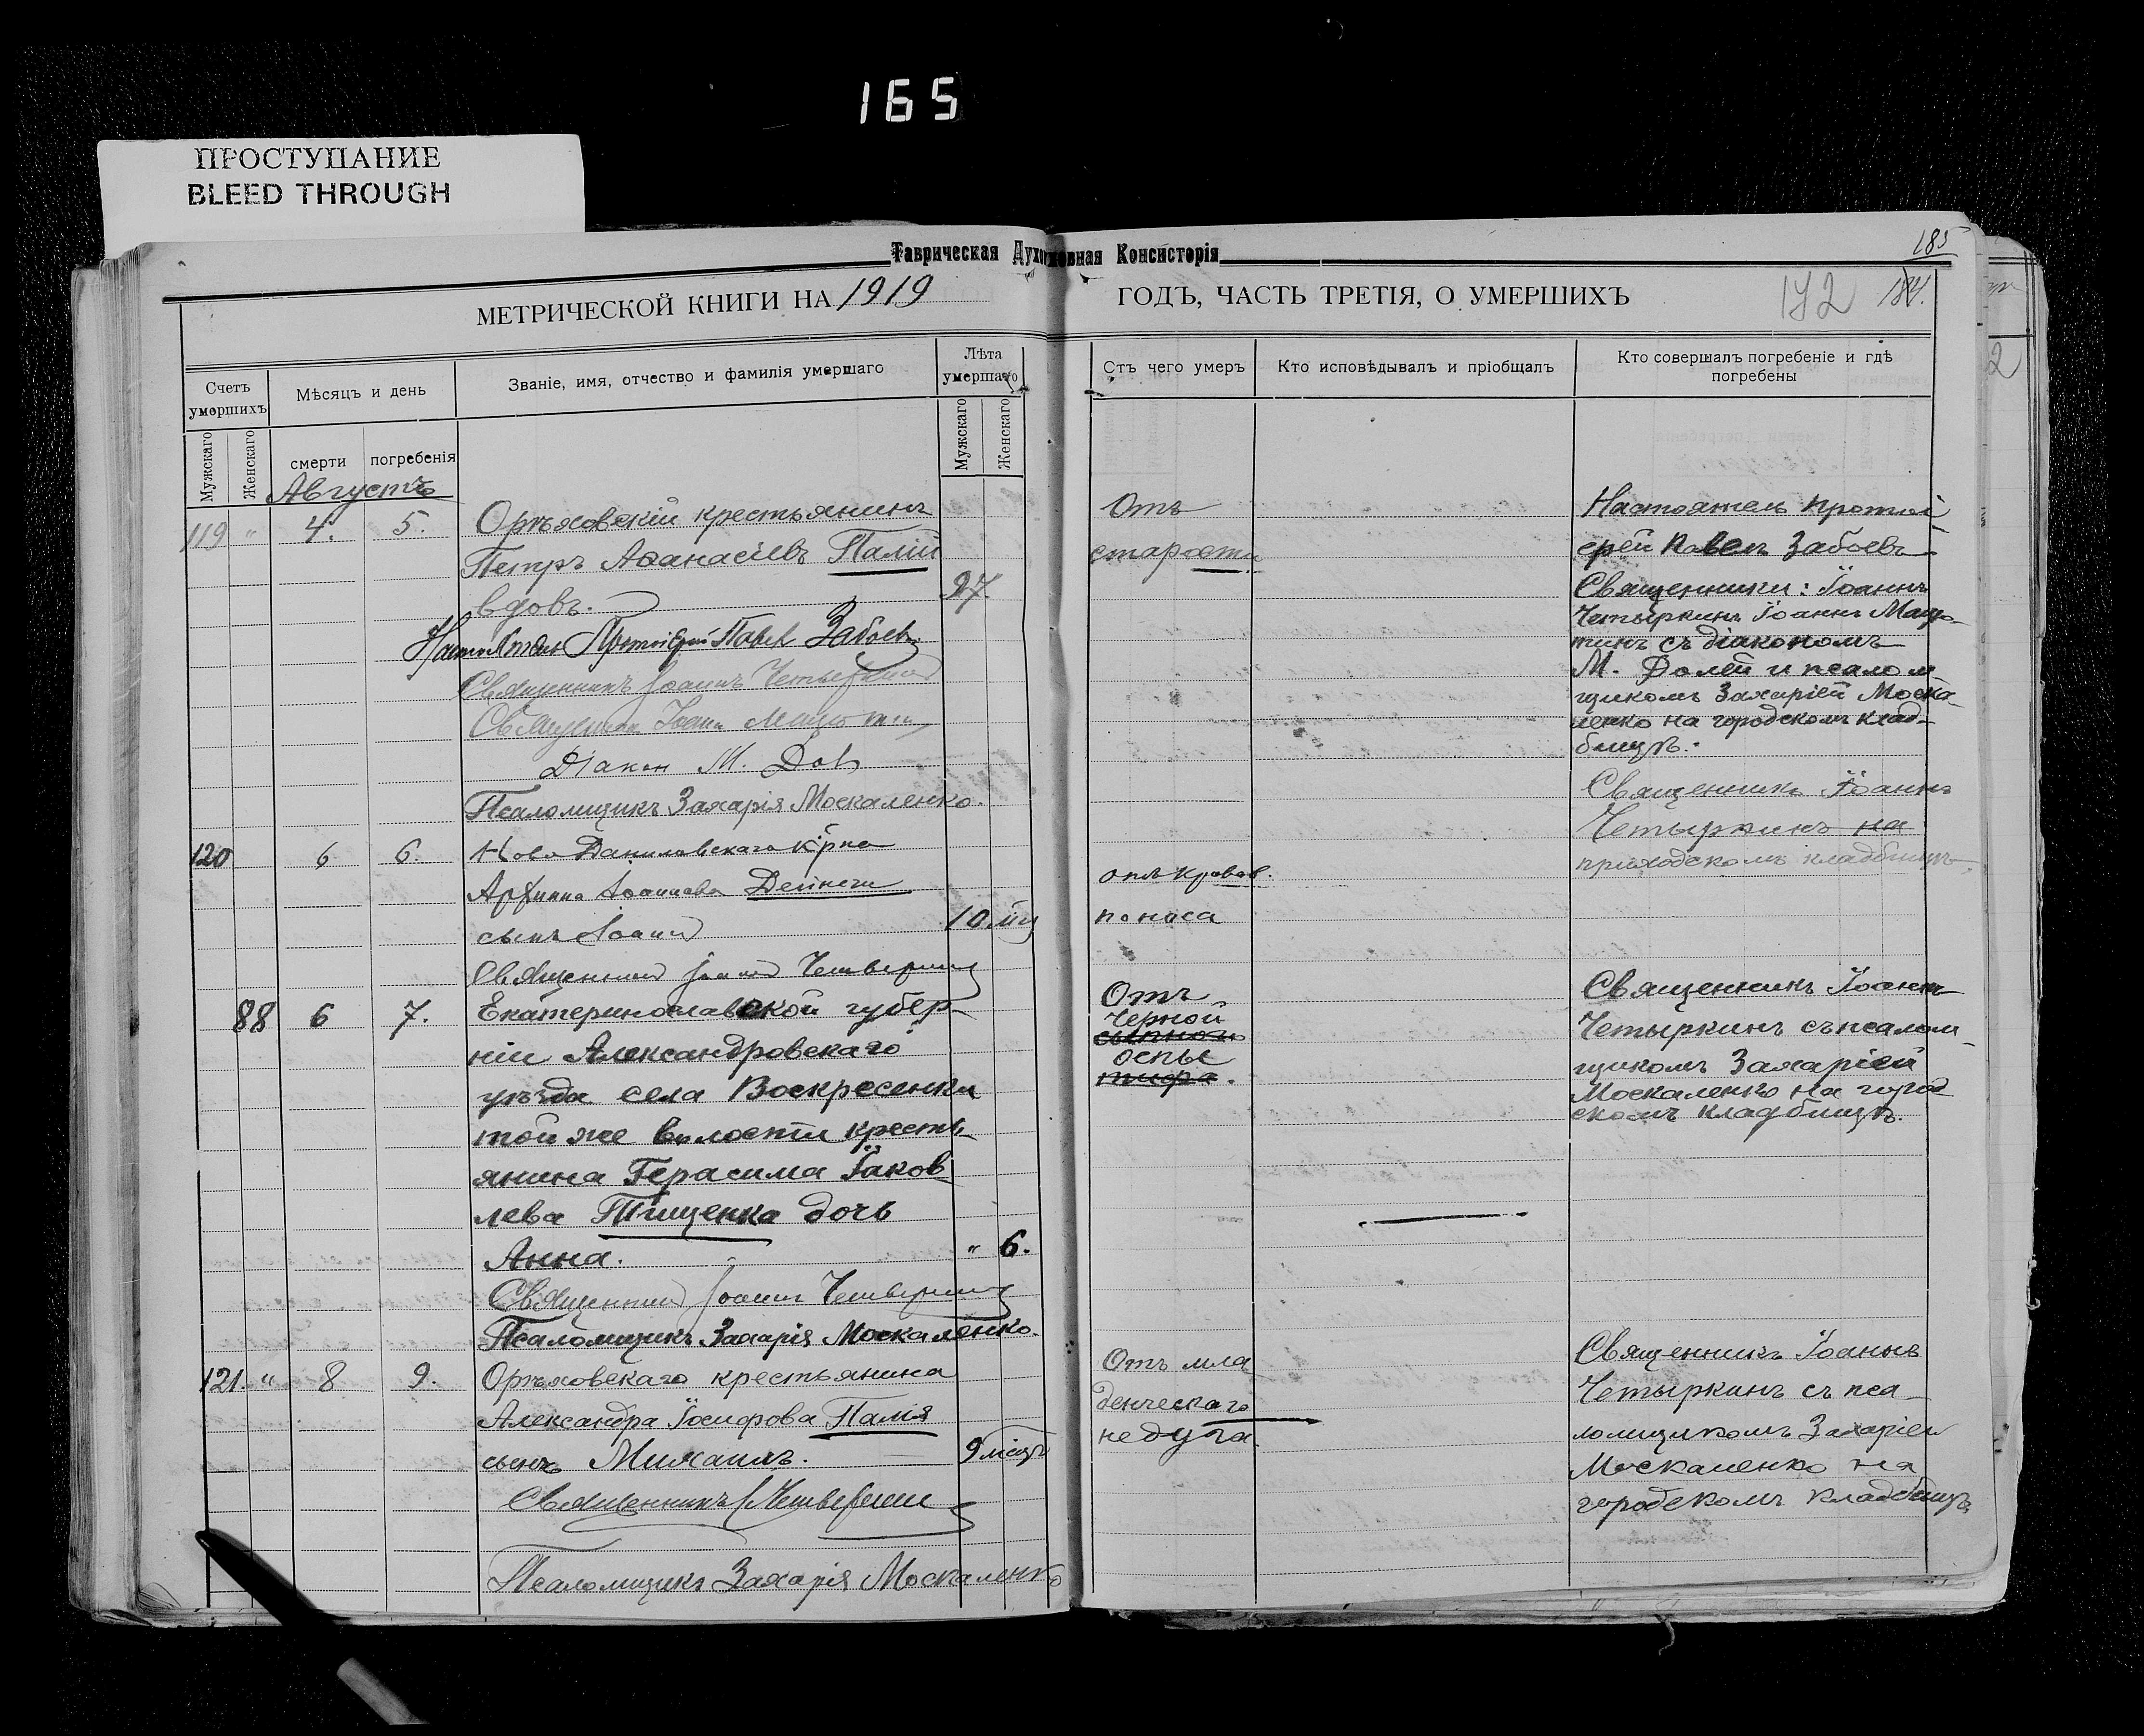 165
ПРОСТУПАНИЕ
BLEED THROUGH
Таврическая Духовная Консисторія
185
МЕТРИЧЕСКОЙ КНИГИ НА 1919
ГОДЪ, ЧАСТЬ ТРЕТІЯ, О УМЕРШИХЪ
172
184.
Счетъ умершихъ
Мѣсяцъ и день
Званіе, имя, отчество и фамилія умершаго
Лѣта умершаго
Мужскаго
Женскаго
смерти
погребенія
Мужскаго
Женскаго
Отъ чего умеръ
Кто исповѣдывалъ и пріобщалъ
Кто совершалъ погребеніе и гдѣ
погребены
2
Августъ
119 " 4. 5. Орѣховскій крестьянинъ
Петръ Аѳанасіевъ Палій
вдовъ. 97.
Настоятель Протоіерей Павел Забоев
Священникъ Іоаннъ
Священник Іоанн
Діакон М. Дол
Псаломщикъ Захарія Москаленко.
Отъ
старости
Настоятель протоі
ерей Павелъ Забоевъ
Священники: Іоаннъ
Четыркинъ Іоаннъ
съ діакономъ
М. Долей и псалом
щикомъ Захаріей Моска-
ленко на городскомъ клад-
бищѣ.
120 6 6. Ново Даниловскаго
Іоаннова
сынъ Іоанн 10
Священникъ Іоанн
отъ кровав.
поноса
Священникъ Іоаннъ
Четыркинъ на
приходскомъ кладбищѣ
88 6 7. Екатеринославской губер-
ніи Александровскаго
уѣзда села Воскресенки
той же волости кресть-
янина Герасима Іаков
лева Тищенка дочь
Анна. " 6.
Священникъ Іоанн
Псаломщикъ Захарія Москаленко.
Отъ
черной
сыпного
оспы
тифа.
Священникъ Іоаннъ
Четыркинъ съ псалом-
щикомъ Захаріей
Москаленко на город
скомъ кладбищѣ.
121. " 8 9. Орѣховскаго крестьянина
Александра Іосифова Палія
сынъ Михаилъ. 9 місяц
Священникъ
Псаломщикъ Захарія Москаленко
Отъ мла
денческаго
недуга.
Священникъ Іоаннъ
Четыркинъ съ пса
ломщикомъ Захаріей
Москаленко на
городскомъ кладбищѣ